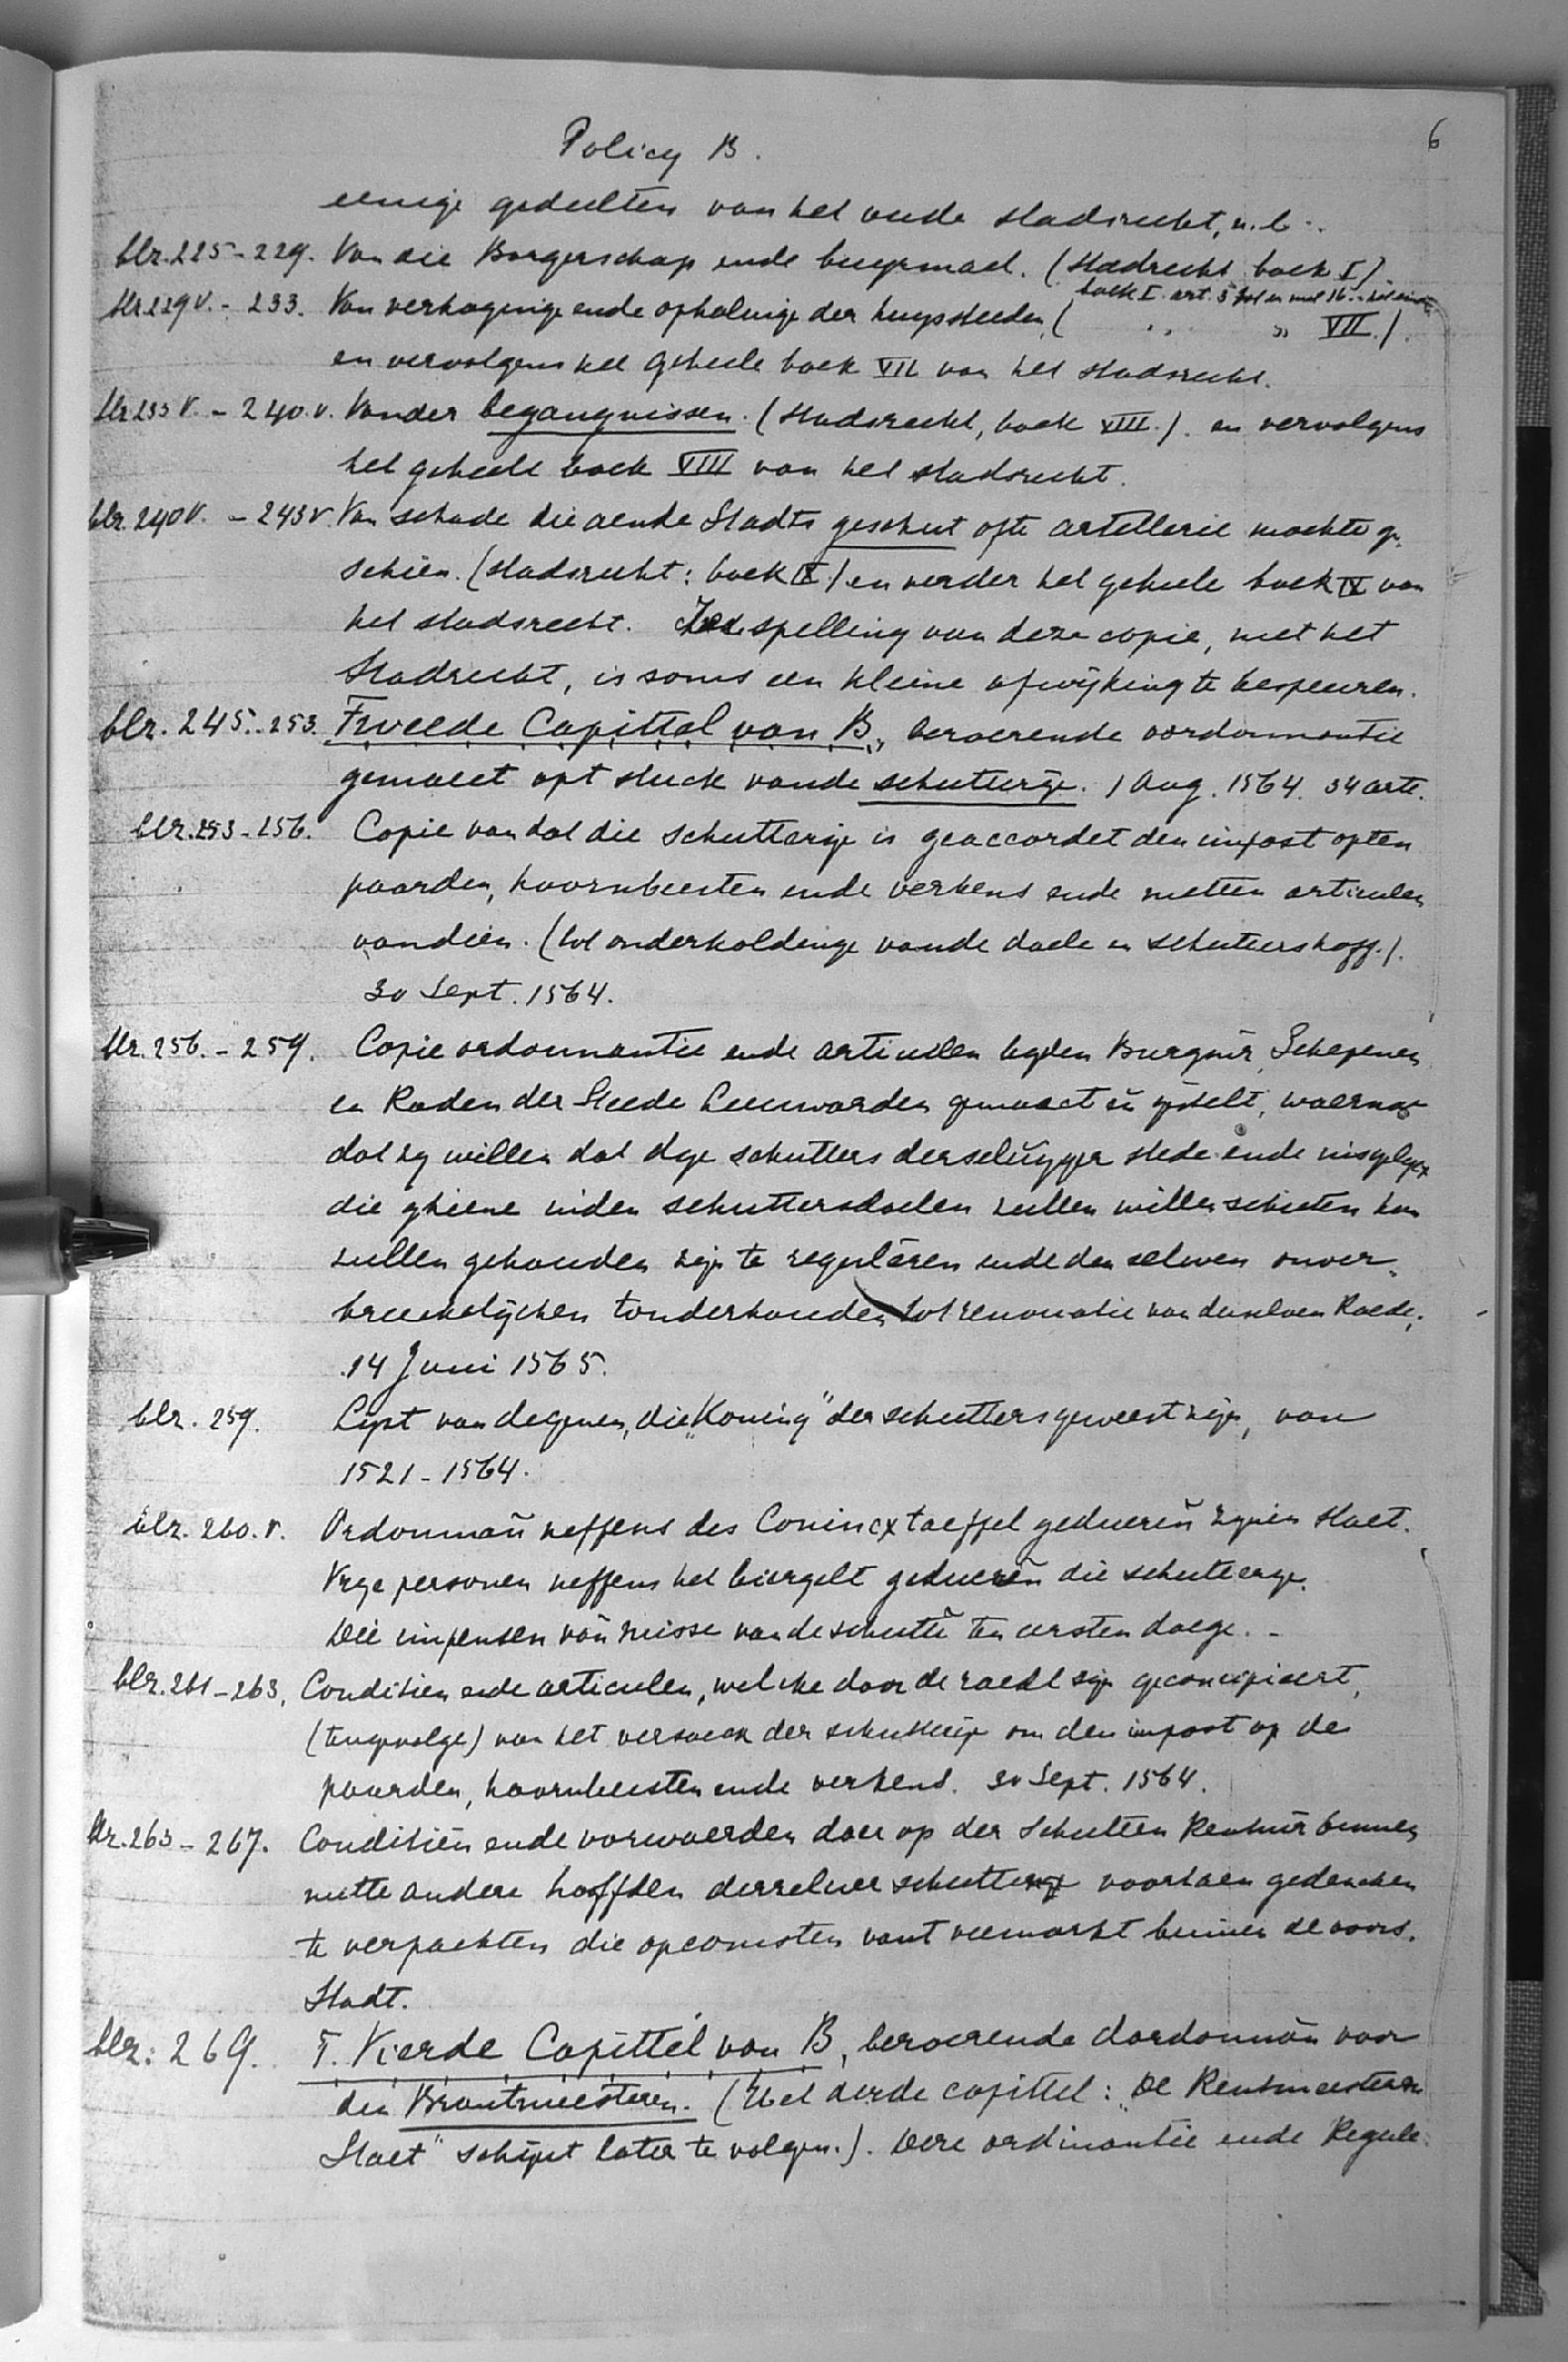 6
Policy B.
eenige gedeelten van het oude stadsrecht, n.l.
blz. 225 - 229. Van die Borgerschap ende buyrmael. (Stadrecht boek I).
boek I. art. 5 tot en met 16
blz 229 v. - 233. Van verhoginge ende ophalinge der huyssteeden, ( „ „ VII.).
en vervolgens het geheele boek VII van het stadsrecht.
blz 233 v. - 240. v. Vander begangnissen. (Stadsrecht, boek VIII.). en vervolgens
het geheele boek VIII van het stadsrecht.
blz. 240 v. - 243 v. Van schade die aende Stadts geschut ofte artellerie mochte ge-
schiën. (Stadsrecht: boek IX) en verder het geheele boek IX van
het stadsrecht. spelling van deze copie, met het
Stadrecht, is soms een kleine afwijking te bespeuren.
blz. 245.-253. Tweede Capittel van B, beroerende oordonnantie
gemaect opt stuck vande schutterije. 1 Aug. 1564. 34 arte.
blz. 253 - 256. Copie van dat die schutterije is geaccordet den impost opten
paarden, hoornbeesten ende verkens ende metten articulen
vandien. (tot onderholdinge vande doele en schuttershoff.).
30 Sept. 1564.
blz. 256. - 259. Copie ordonnantie ende articulen byden Burgmr, Schepenen
en Raden der Stede Leeuwarden gemaect en gestelt, waernae
dat zy willen dat dye schutters derselver stede ende
die ghiene inden schuttersdoelen zullen willen schieten hen
zullen gehouden zijn te reguleren ende den selven onver-
breeckelijcken tonderhouden tot renovatie van denselven Raede.
14 Juni 1565.
blz. 259. Lyst van degenen, die „Koning" der schutters geweest zijn, van
1521 - 1564.
blz. 260. v. Ordonnan neffens des Conincx taeffel geduerende zynen staet.
Vrye personen neffens het biergelt geduerende die schutterye.
Die impensen van missse vande schutte ten eersten daege. -
blz. 261 - 263, Conditien ende articulen, welcke door de raedt zijn geconcipieert,
(tengevolge) van het versoeck der schutterije om den impost op de
paarden, hoornbeesten ende verkens. 30 Sept. 1564.
blz. 263 - 267. Conditiën ende vorwaerden daer op der Schutten Rentmr binnen
mitte andere hooffden derzelver schutterye voortaen gedencken
te verpachten die opcomsten vant veemarkt binnen de voors.
Stadt.
blz: 269. T. Vierde Capittel van B, beroerende dordonnan voor
den Brantmeesteren. (Het derde capittel: „De Rentmeesteren
Staet" schijnt later te volgen.). Dere ordinantie ende Regule-